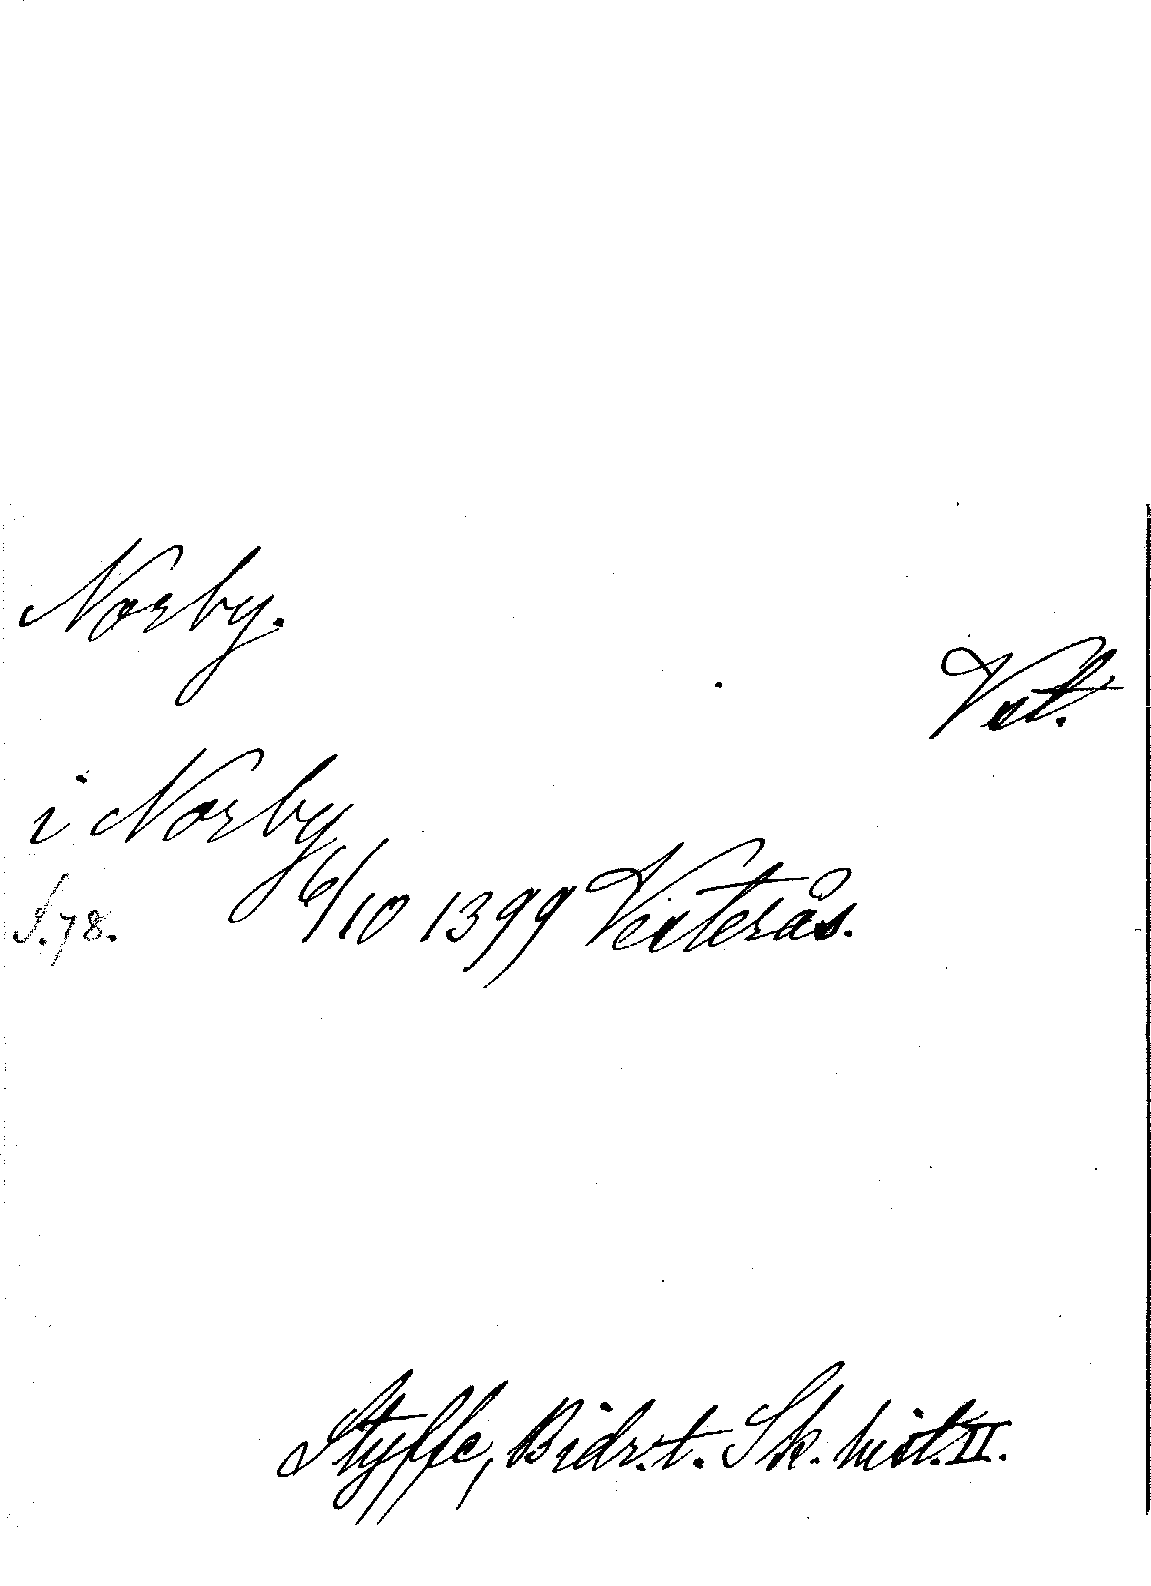 Norby.
Vst.
i Norby
6/10 1399 Vesterås.
S. 78.
Styffe, Bidr. t. Sk. hist. II.